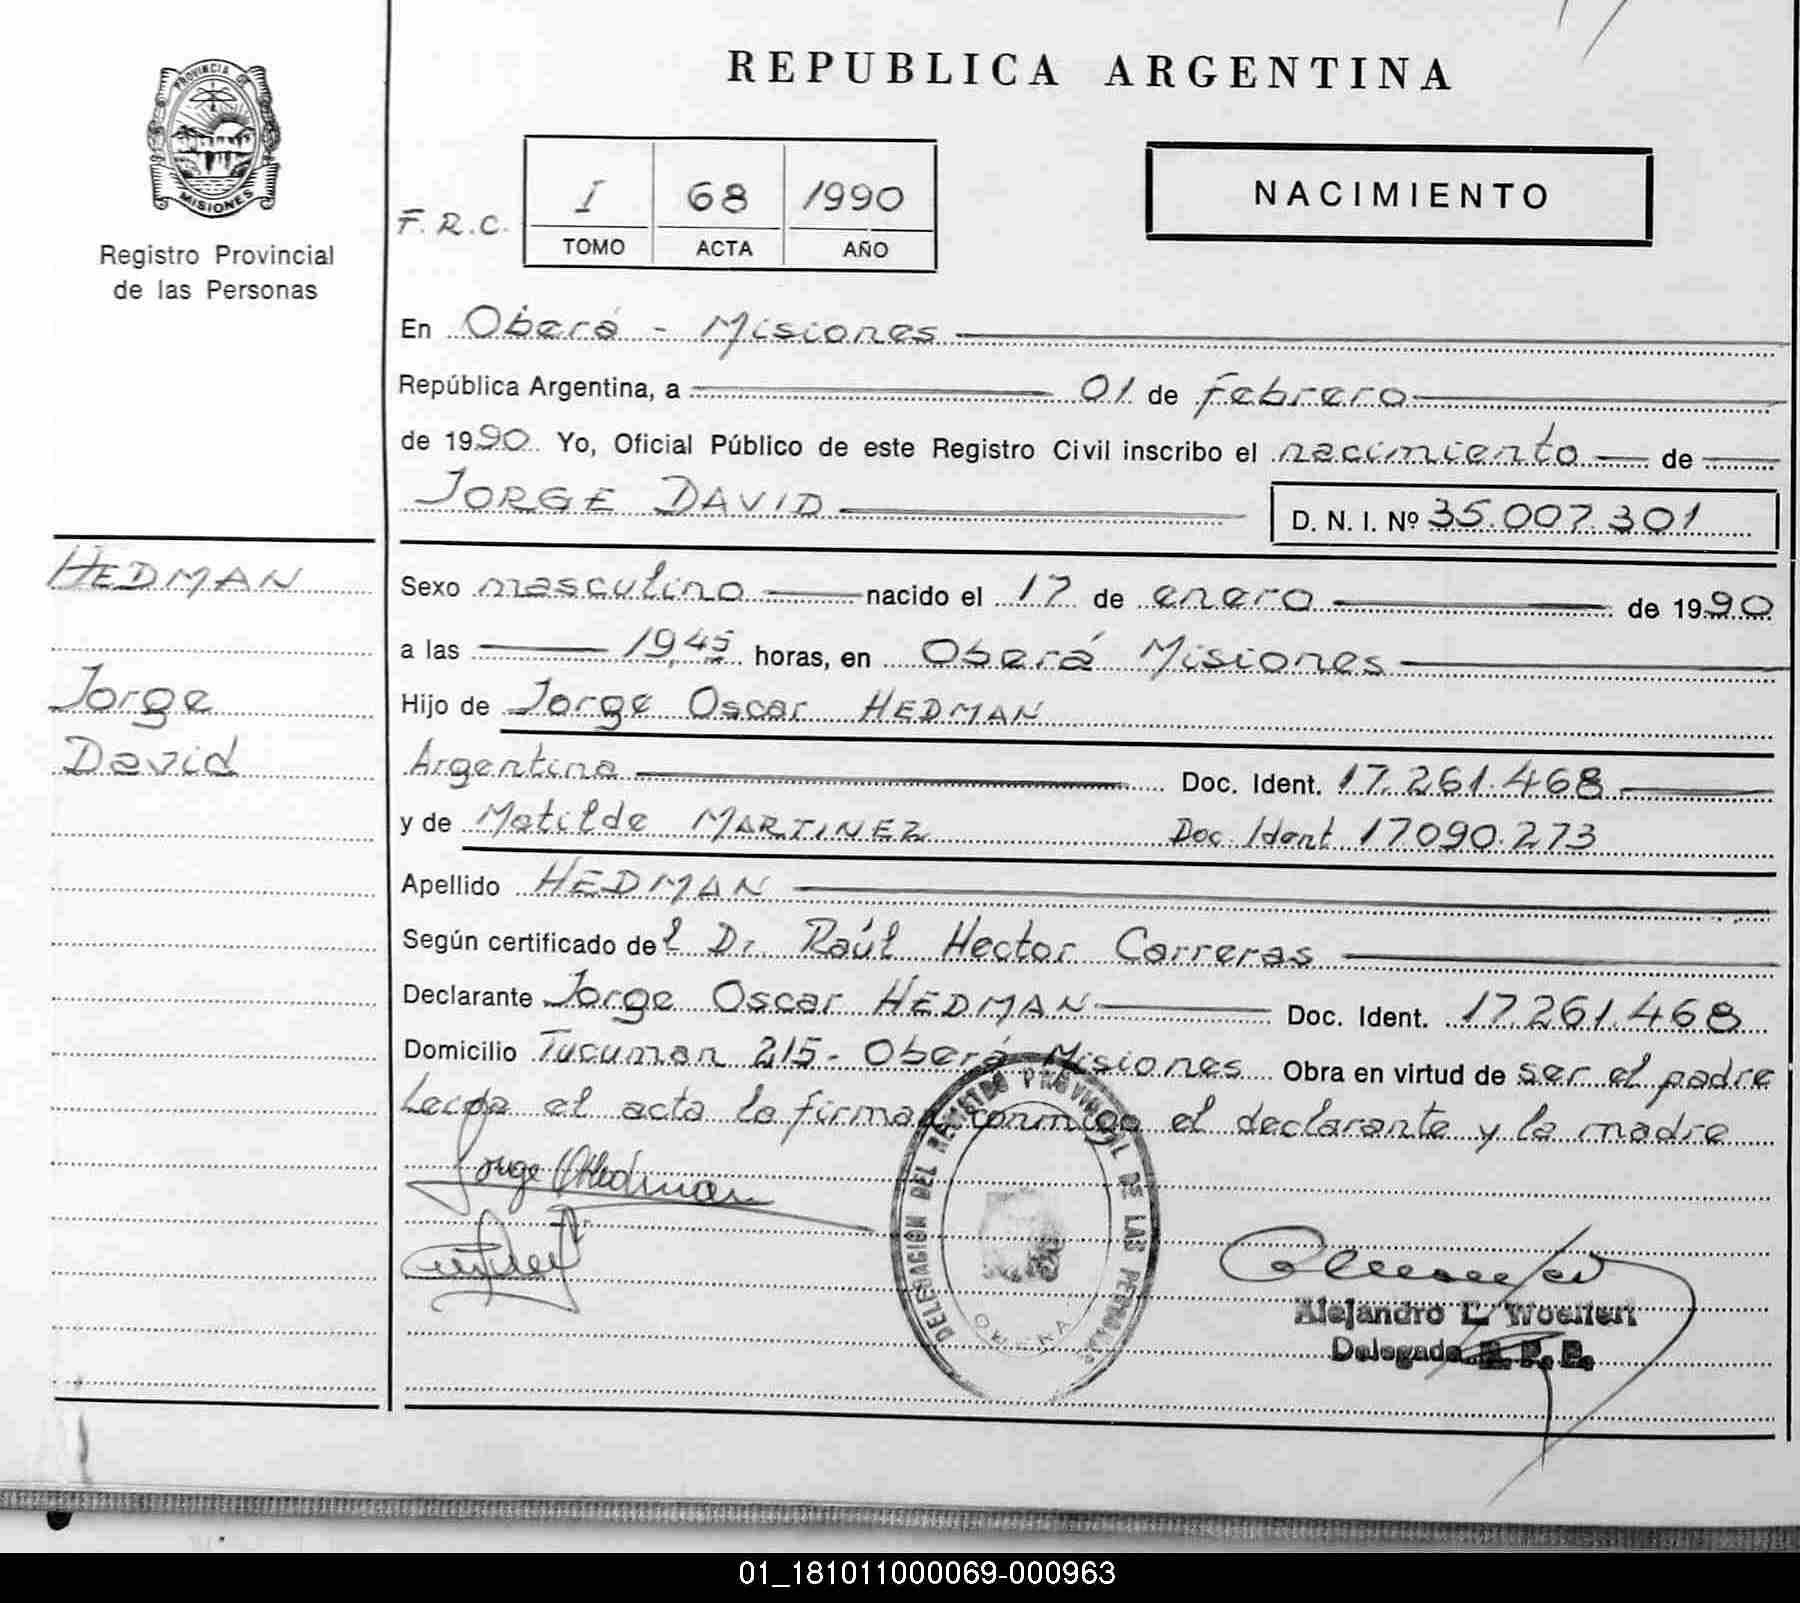 REPUBLICA ARGENTINA
PROVINCIA DE
MISIONES
Registro Provincial
de las Personas
F.R.C.
I 68 1990
TOMO ACTA AÑO
NACIMIENTO
En Oberá - Misiones
República Argentina, a 01 de febrero
de 1990 Yo, Oficial Público de este Registro Civil inscribo el nacimiento de
JORGE DAVID
D. N. I. Nº 35.007.301
HEDMAN
Jorge
David
Sexo masculino nacido el 17 de enero de 1990
a las 19,45 horas, en Oberá Misiones
Hijo de Jorge Oscar HEDMAN
Argentina Doc. Ident. 17.261.468
y de Matilde MARTINEZ Doc. Ident 17090.273
Apellido HEDMAN
Según certificado del Dr. Raúl Hector Carreras
Declarante Jorge Oscar HEDMAN Doc. Ident. 17.261.468
Domicilio Tucuman 215- Oberá Misiones Obra en virtud de ser el padre
Leida el acta la firman conmigo el declarante y la madre
Jorge O Hedman
DELEGACION DEL REGISTRO PROVINCIAL DE LAS PERSONAS
Alejandro L. Woellert
Delegado R. P. P.
01_181011000069-000963